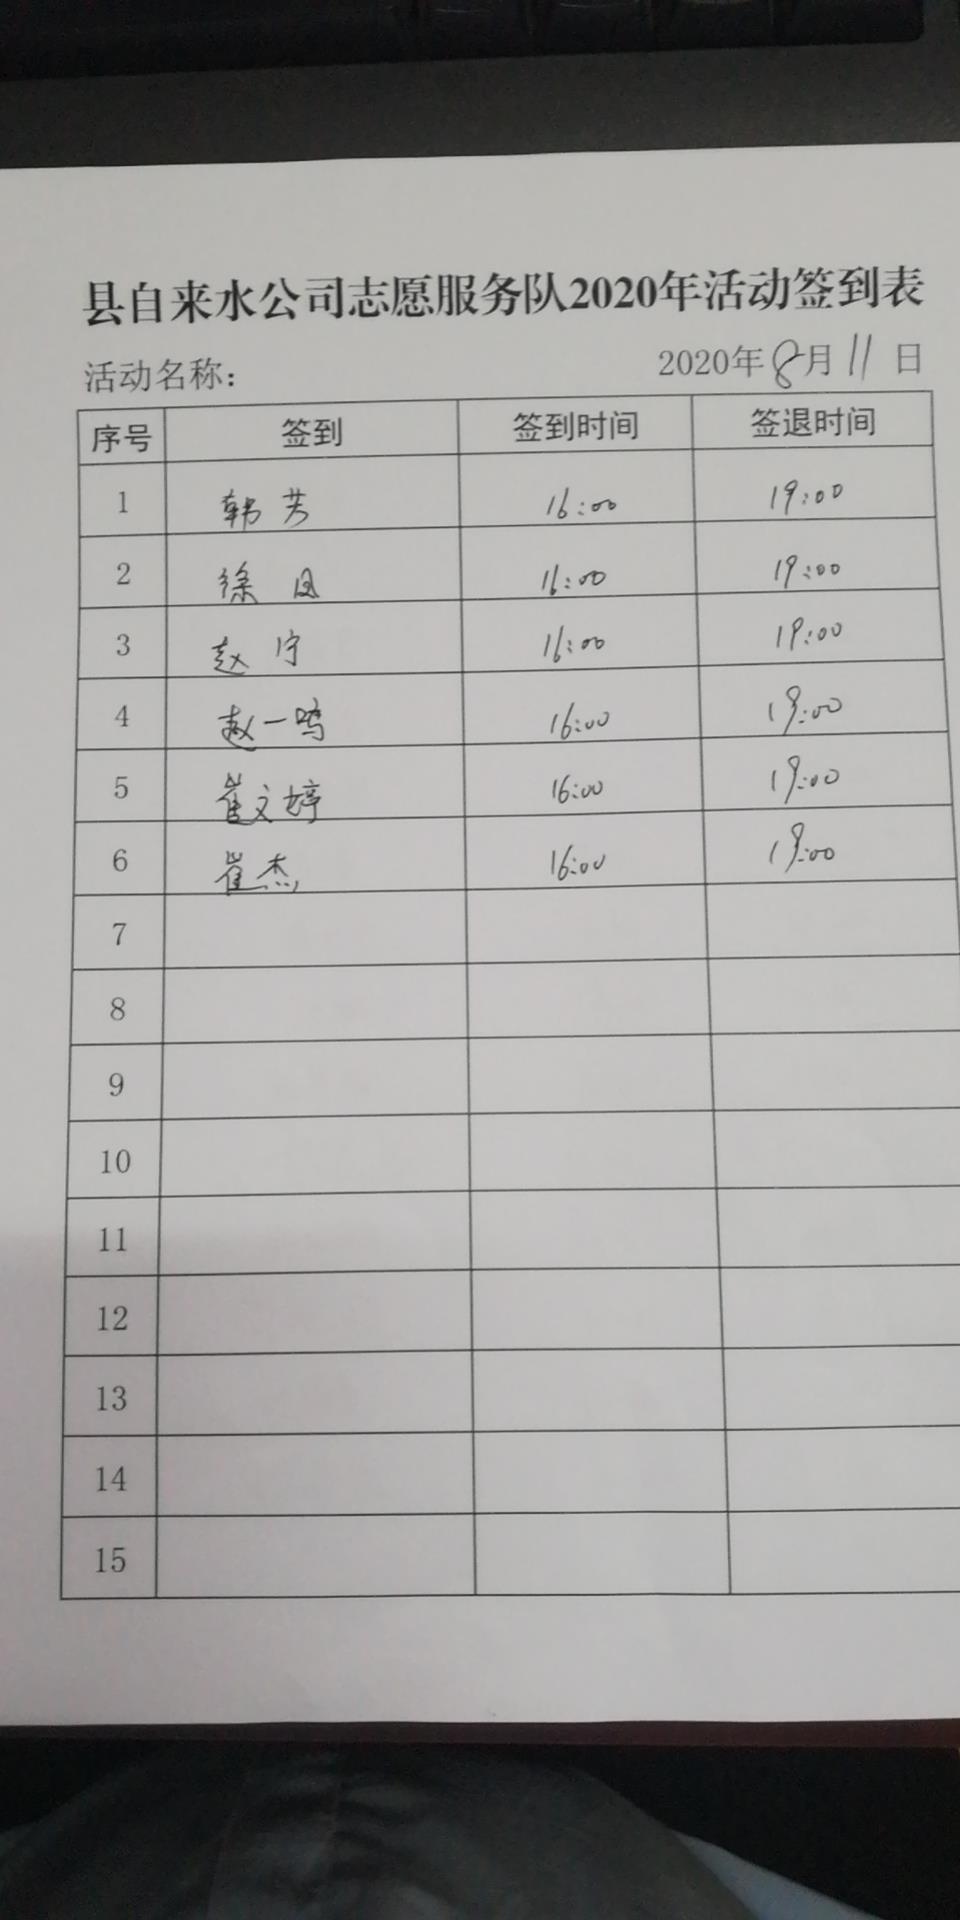 县自来水公司志愿服务队2020年活动签到表
活动名称： 2020年8月11日
序号 签到 签到时间 签退时间
1 韩芳 16:00 19:00
2 徐 16:00 19:00
3 赵宁 16:00 19:00
4 赵一鸣 16:00 19:00
5 崔文婷 16:00 19:00
6 崔杰 16:00 19:00
7
8
9
10
11
12
13
14
15